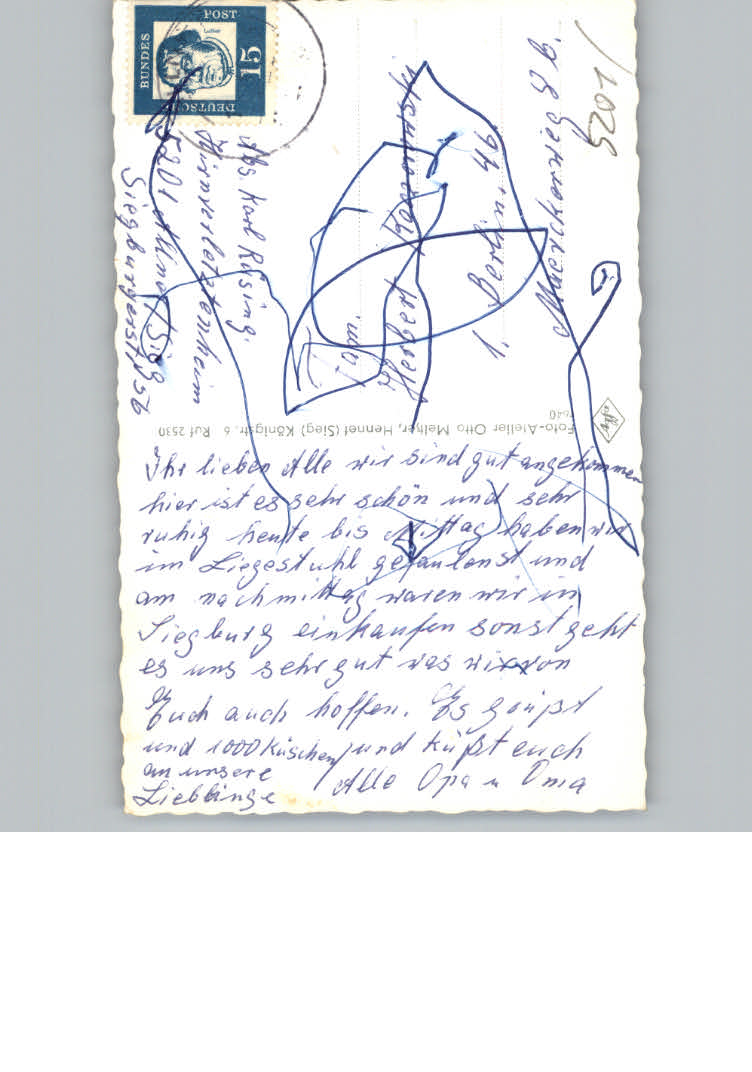 DEUTSCHE
BUNDES
POST
15
Luther
Abs. Karl Rüsing.
Hirnverletztenheim
5201 Allner/Sieg
Siegburgerst. 56
Herbert
1. Berlin 46
8 b.
5201/
Foto-Atelier Otto Meltzer, Hennef (Sieg) Königstr. 6 Ruf 2530
Agfa
Ihr lieben Alle wir sind gut angekommen
hier ist es sehr schön und sehr
ruhig heute bis Mittag haben wir
im Liegestuhl gefaulenst und
am nachmittag waren wir in
Siegburg einkaufen sonst geht
es uns sehr gut was wir von
Euch auch hoffen. Es grüßt
und küßt euch
Alle Opa u Oma
und 1000 Küschen
an unsere
Lieblinge